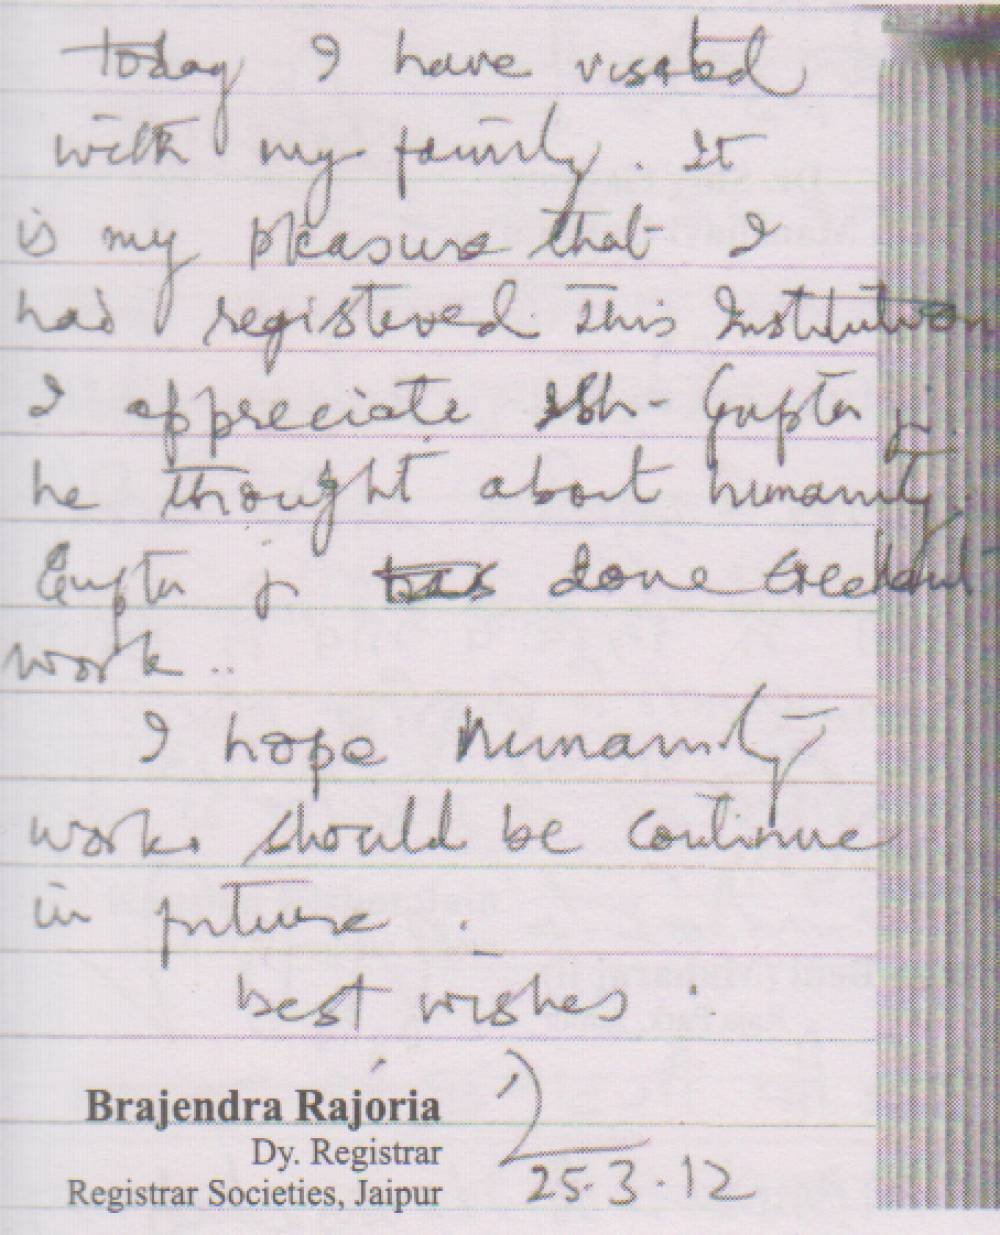 today I have visited
with my family. It
is my pleasure that I
had registered this Institution
I appreciate Sh- Gupta ji.
he thought about humanity.
Gupta ji has done Excellent
work..
I hope humanity
work. should be continue
in future.
best wishes.
Brajendra Rajoria
Dy. Registrar
Registrar Societies, Jaipur
25.3.12